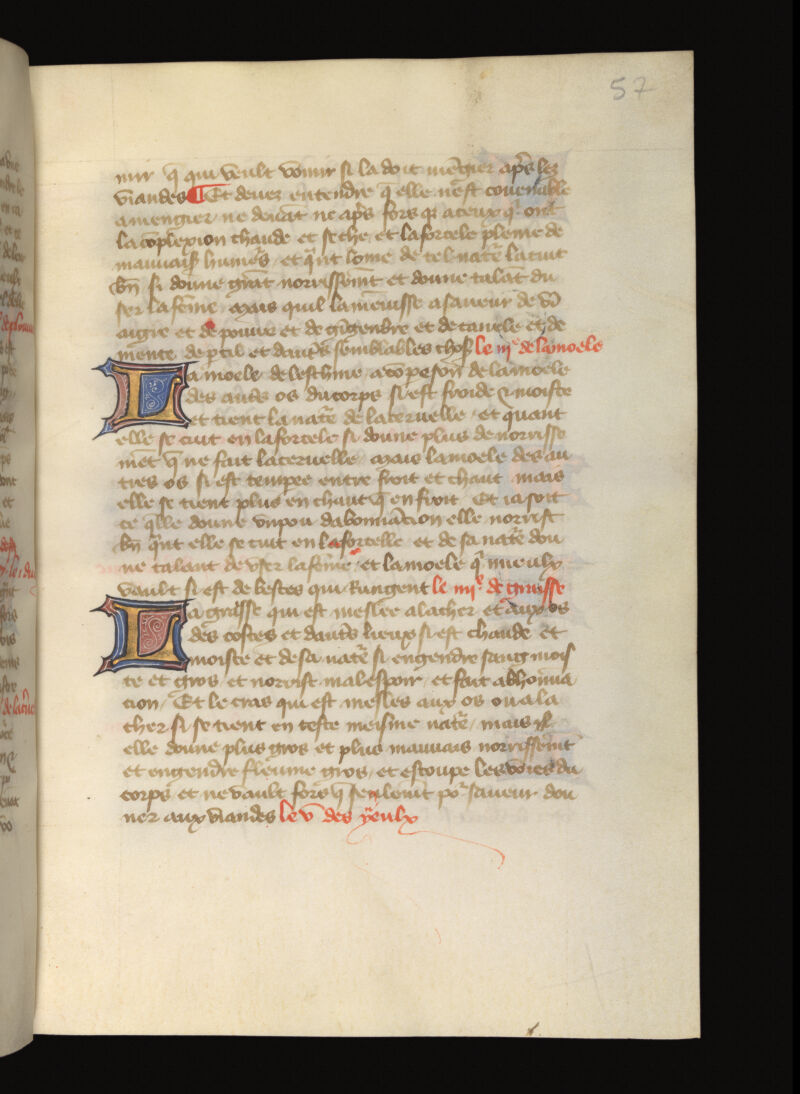 57
mir q̄ qui veult vomir si la doit mēgier ap̄s lez
viandes Et devez entendre q̄ elle nest covenable
a mengier ne devāt ne ap̄s fors q̄ a ceux q̄ ont
la cōplexion chaude et seche et la forcele pleine de
mauvais humeˢ et q̄nt lome de tel natē la cuit
bn̄ si donne grāt norrissemt̄ et donne talāt du
ser la fēme mais quil la menuisse a saveur de vī
aigre et de poivre et de gīgenbre et de canele et de
mente de p̄cil et dautˢ semblables chosꝭ le iijᵉ de la moele
La moele de leschine a cōpeson de la moele
des autˢ os du corps si est froide ⁊ moiste
et tient la natē de la cervelle et quant
elle se cuit en la forcele si donne plus de norrisse
met̄ q̄ ne fait la cervelle mais la moele des au
tres os si est tempee entre froit et chaut mais
elle se tient plus en chaut q̄ en froit Et ia soit
ce q̄lle donne un pou dabominacion elle norrist
bn̄ q̄nt elle se cuit en la forcelle et de sa natē don
ne talant de user la fēme et la moele q̄ mieulx
vault si est de bestes qui rungent le iiijᵉ de gresse
La gresse qui est meslee a la cher et aux os
des costes et dautˢ lieux si est chaude et
moiste et de sa natē si engendre sang mois
te et gros et norrist mal espoir et fait abhomīa
cion Et le cras qui est mesles aux os ou a la
cher si se tient en ceste meisme natē mais
elle donne plus gros et plus mauvais norrissemt̄
et engendre fleume gros et estoupe les voies du
corps et ne vault fors q̄ seulemt̄ poʳ saveur don
ner aux viandes le v̄ des yeulx